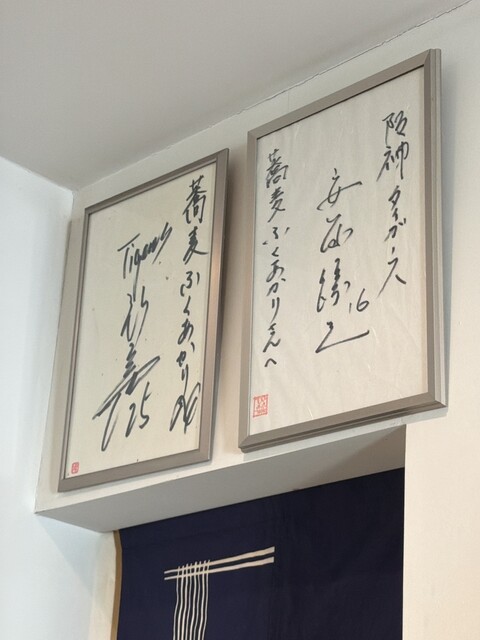 阪神タイガース
安藤優也
16
蕎麦ふくあかりさんへ
蕎麦ふくあかり
Tigers
25